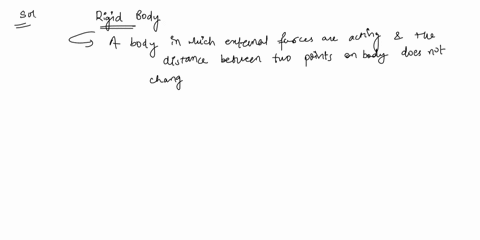 Sol
Rigid Body
A body in which external forces are acting & the
distance between two points on body does not
chang